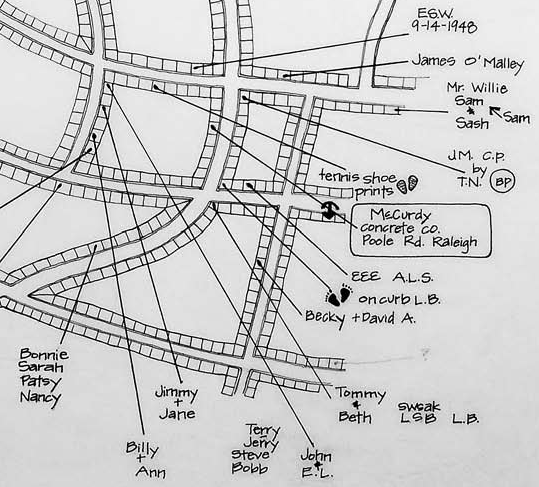 E.G.W.
9-14-1948
James O'Malley
Mr. Willie
Sam
*
Sash
Sam
J.M. C.P.
by
T.N. BP
tennis shoe
prints
McCurdy
concrete co.
Poole Rd. Raleigh
EEE A.L.S.
on curb L.B.
Becky + David A.
Bonnie
Sarah
Patsy
Nancy
Jimmy
+
Jane
Tommy
+
Beth
swsak
LSB L.B.
Billy
+
Ann
Terry
Jerry
Steve
Bobb
John
+
E.L.